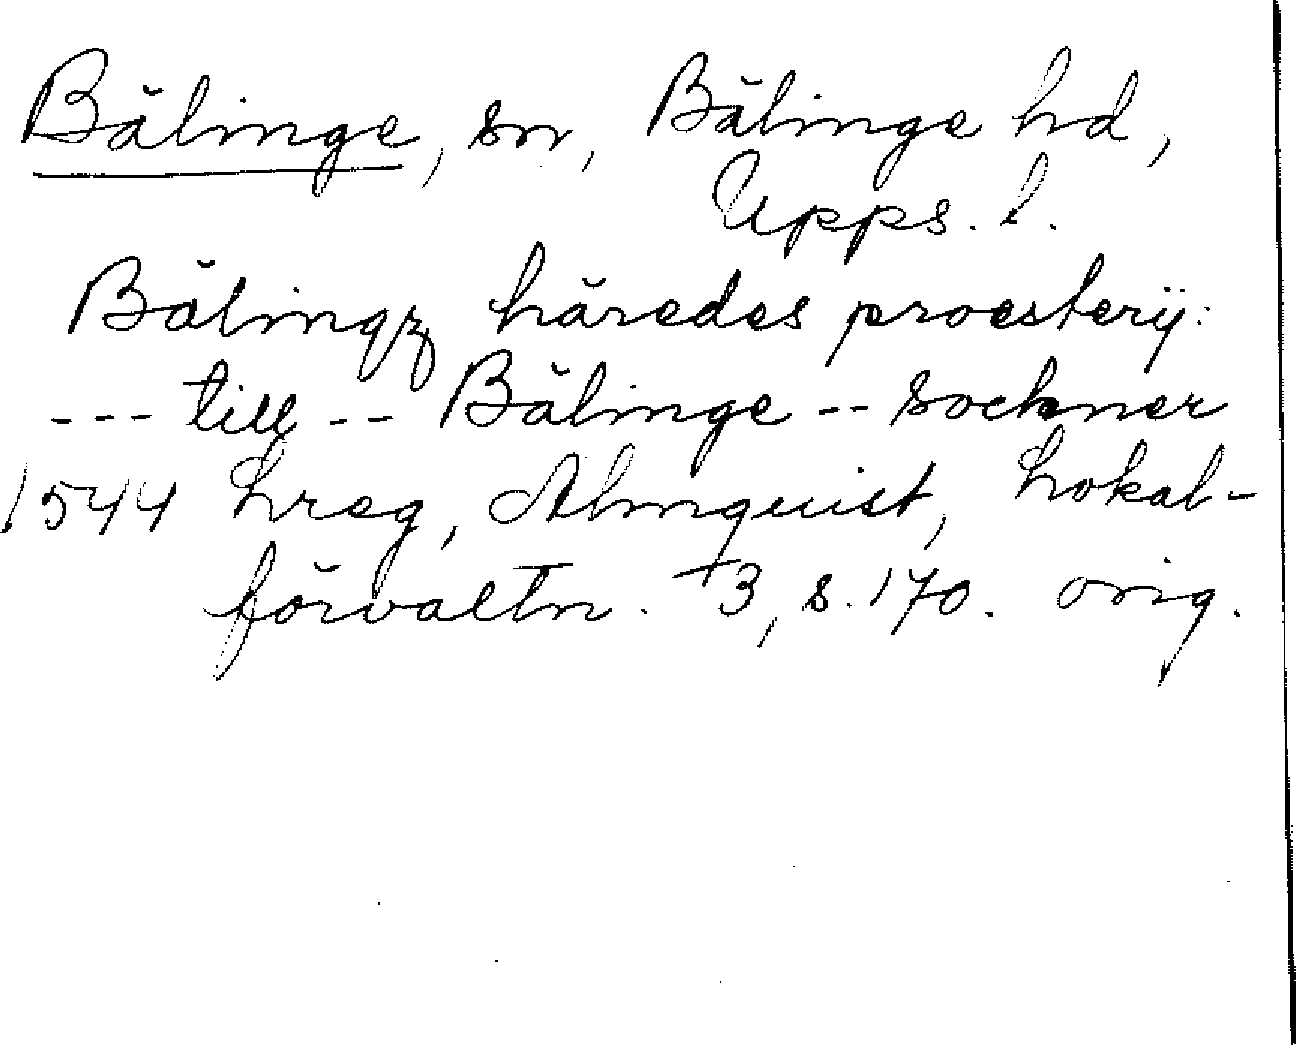 Bälinge, sn, Bälinge hd,
Upps. l.
Bälingz häredes proesterij:
--- till -- Bälinge -- sockner
1544 Lreg, Almquist, Lokal-
förvaltn. 3, s. 170. orig.